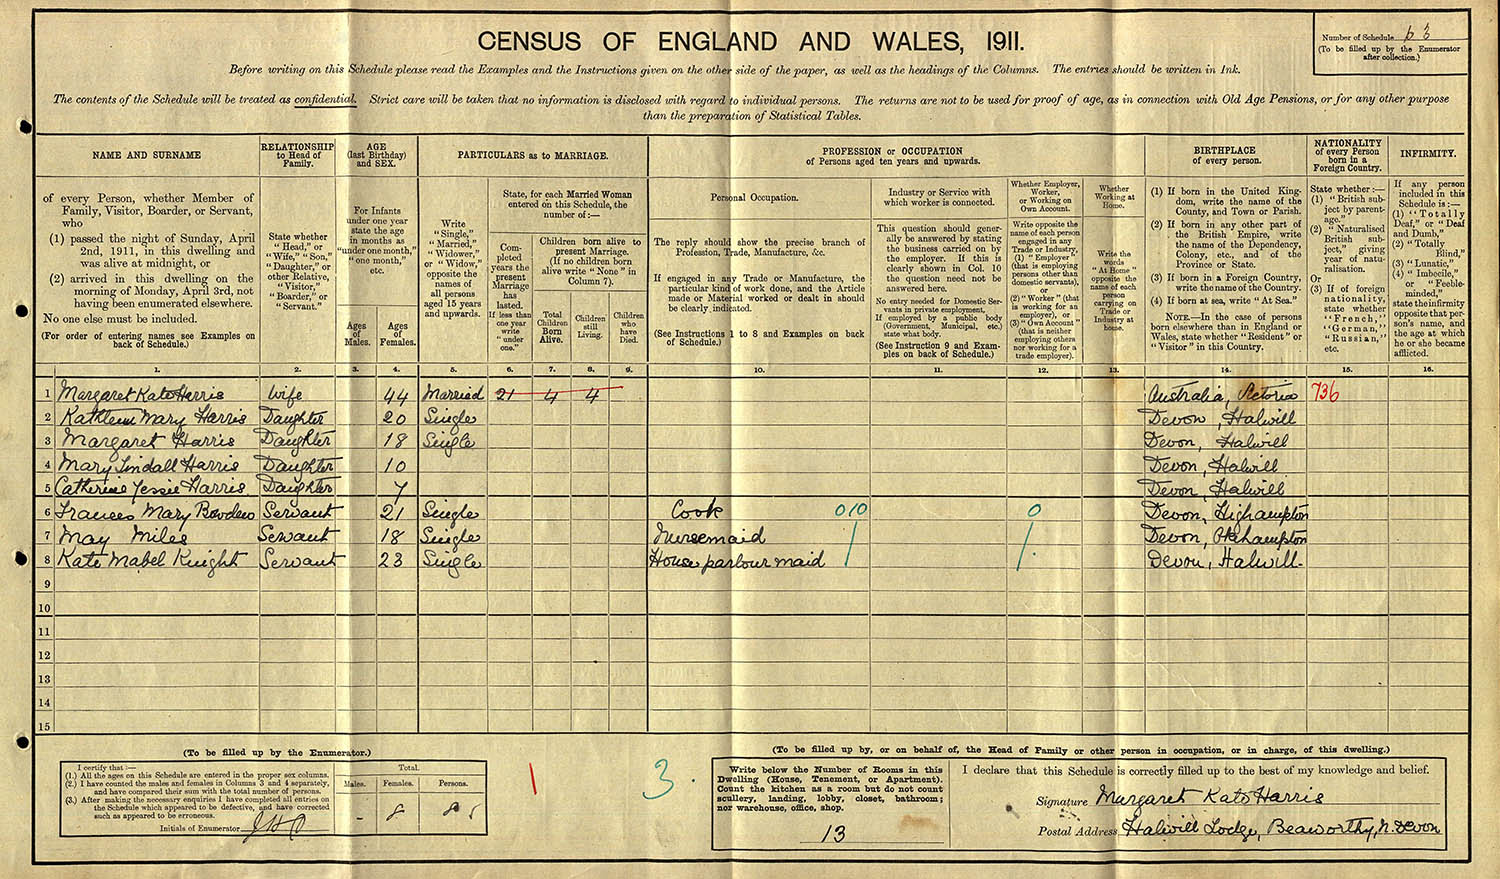 CENSUS OF ENGLAND AND WALES, 1911.
Number of Schedule 63
(To be filled up by the Enumerator
after collection.)
Before writing on this Schedule please read the Examples and the Instructions given on the other side of the paper, as well as the headings of the Columns. The entries should be written in Ink.
The contents of the Schedule will be treated as confidential. Strict care will be taken that no information is disclosed with regard to individual persons. The returns are not to be used for proof of age, as in connection with Old Age Pensions, or for any other purpose
than the preparation of Statistical Tables.
NAME AND SURNAME
of every Person, whether Member of
Family, Visitor, Boarder, or Servant,
who
(1) passed the night of Sunday, April
2nd, 1911, in this dwelling and
was alive at midnight, or
(2) arrived in this dwelling on the
morning of Monday, April 3rd, not
having been enumerated elsewhere.
No one else must be included.
(For order of entering names see Examples on
back of Schedule.)
RELATIONSHIP
to Head of
Family.
State whether
"Head," or
"Wife," "Son,"
"Daughter," or
other Relative,
"Visitor,"
"Boarder," or
"Servant."
AGE
(last Birthday)
and SEX.
For Infants
under one year
state the age
in months as
"under one month,"
"one month,"
etc.
Ages
of
Males.
Ages
of
Females.
PARTICULARS as to MARRIAGE.
Write
"Single,"
"Married,"
"Widower,"
or "Widow,"
opposite the
names of
all persons
aged 15 years
and upwards.
State, for each Married Woman
entered on this Schedule, the
number of:—
Com-
pleted
years the
present
Marriage
has
lasted.
If less than
one year
write
"under
one."
Children born alive to
present Marriage.
(If no children born
alive write "None" in
Column 7).
Total
Children
Born
Alive.
Children
still
Living.
Children
who
have
Died.
PROFESSION or OCCUPATION
of Persons aged ten years and upwards.
Personal Occupation.
The reply should show the precise branch of
Profession, Trade, Manufacture, &c.
If engaged in any Trade or Manufacture, the
particular kind of work done, and the Article
made or Material worked or dealt in should
be clearly indicated.
(See Instructions 1 to 8 and Examples on back
of Schedule.)
Industry or Service with
which worker is connected.
This question should gener-
ally be answered by stating
the business carried on by
the employer. If this is
clearly shown in Col. 10
the question need not be
answered here.
No entry needed for Domestic Ser-
vants in private employment.
If employed by a public body
(Government, Municipal, etc.)
state what body.
(See Instruction 9 and Exam-
ples on back of Schedule.)
Whether Employer,
Worker,
or Working on
Own Account.
Write opposite the
name of each person
engaged in any
Trade or Industry,
(1) "Employer"
(that is employing
persons other than
domestic servants),
or
(2) "Worker" (that
is working for an
employer), or
(3) "Own Account"
(that is neither
employing others
nor working for a
trade employer).
Whether
Working at
Home.
Write the
words
"At Home"
opposite the
name of each
person
carrying on
Trade or
Industry at
home.
BIRTHPLACE
of every person.
(1) If born in the United King-
dom, write the name of the
County, and Town or Parish.
(2) If born in any other part of
the British Empire, write
the name of the Dependency,
Colony, etc., and of the
Province or State.
(3) If born in a Foreign Country,
write the name of the Country.
(4) If born at sea, write "At Sea."
NOTE.—In the case of persons
born elsewhere than in England or
Wales, state whether "Resident" or
"Visitor" in this Country.
NATIONALITY
of every Person
born in a
Foreign Country.
State whether:—
(1) "British sub-
ject by parent-
age."
(2) "Naturalised
British sub-
ject," giving
year of natu-
ralisation.
Or
(3) If of foreign
nationality,
state whether
"French,"
"German,"
"Russian,"
etc.
INFIRMITY.
If any person
included in this
Schedule is:—
(1) "Totally
Deaf," or "Deaf
and Dumb,"
(2) "Totally
Blind,"
(3) "Lunatic,"
(4) "Imbecile,"
or "Feeble-
minded,"
state the infirmity
opposite that per-
son's name, and
the age at which
he or she became
afflicted.
1. 2. 3. 4. 5. 6. 7. 8. 9. 10. 11. 12. 13. 14. 15. 16.
1 Margaret Kate Harris Wife 44 Married 21 4 4 Australia, Victoria 736
2 Kathleen Mary Harris Daughter 20 Single Devon, Halwill
3 Margaret Harris Daughter 18 Single Devon, Halwill
4 Mary Lindall Harris Daughter 10 Devon, Halwill
5 Catherine Jessie Harris Daughter 7 Devon, Halwill
6 Frances Mary Bowden Servant 21 Single Cook 010 0 Devon, Highampton
7 May Miles Servant 18 Single Nursemaid Devon, Okehampton
8 Kate Mabel Knight Servant 23 Single House parlourmaid Devon, Halwill.
9
10
11
12
13
14
15
(To be filled up by the Enumerator.)
I certify that:—
(1.) All the ages on this Schedule are entered in the proper sex columns.
(2.) I have counted the males and females in Columns 3 and 4 separately,
and have compared their sum with the total number of persons.
(3.) After making the necessary enquiries I have completed all entries on
the Schedule which appeared to be defective, and have corrected
such as appeared to be erroneous.
Initials of Enumerator
Total.
Males. Females. Persons.
- 8 8
1
3.
(To be filled up by, or on behalf of, the Head of Family or other person in occupation, or in charge, of this dwelling.)
Write below the Number of Rooms in this
Dwelling (House, Tenement, or Apartment).
Count the kitchen as a room but do not count
scullery, landing, lobby, closet, bathroom;
nor warehouse, office, shop.
13
I declare that this Schedule is correctly filled up to the best of my knowledge and belief.
Signature Margaret Kate Harris
Postal Address Halwill Lodge, Beaworthy, N. Devon